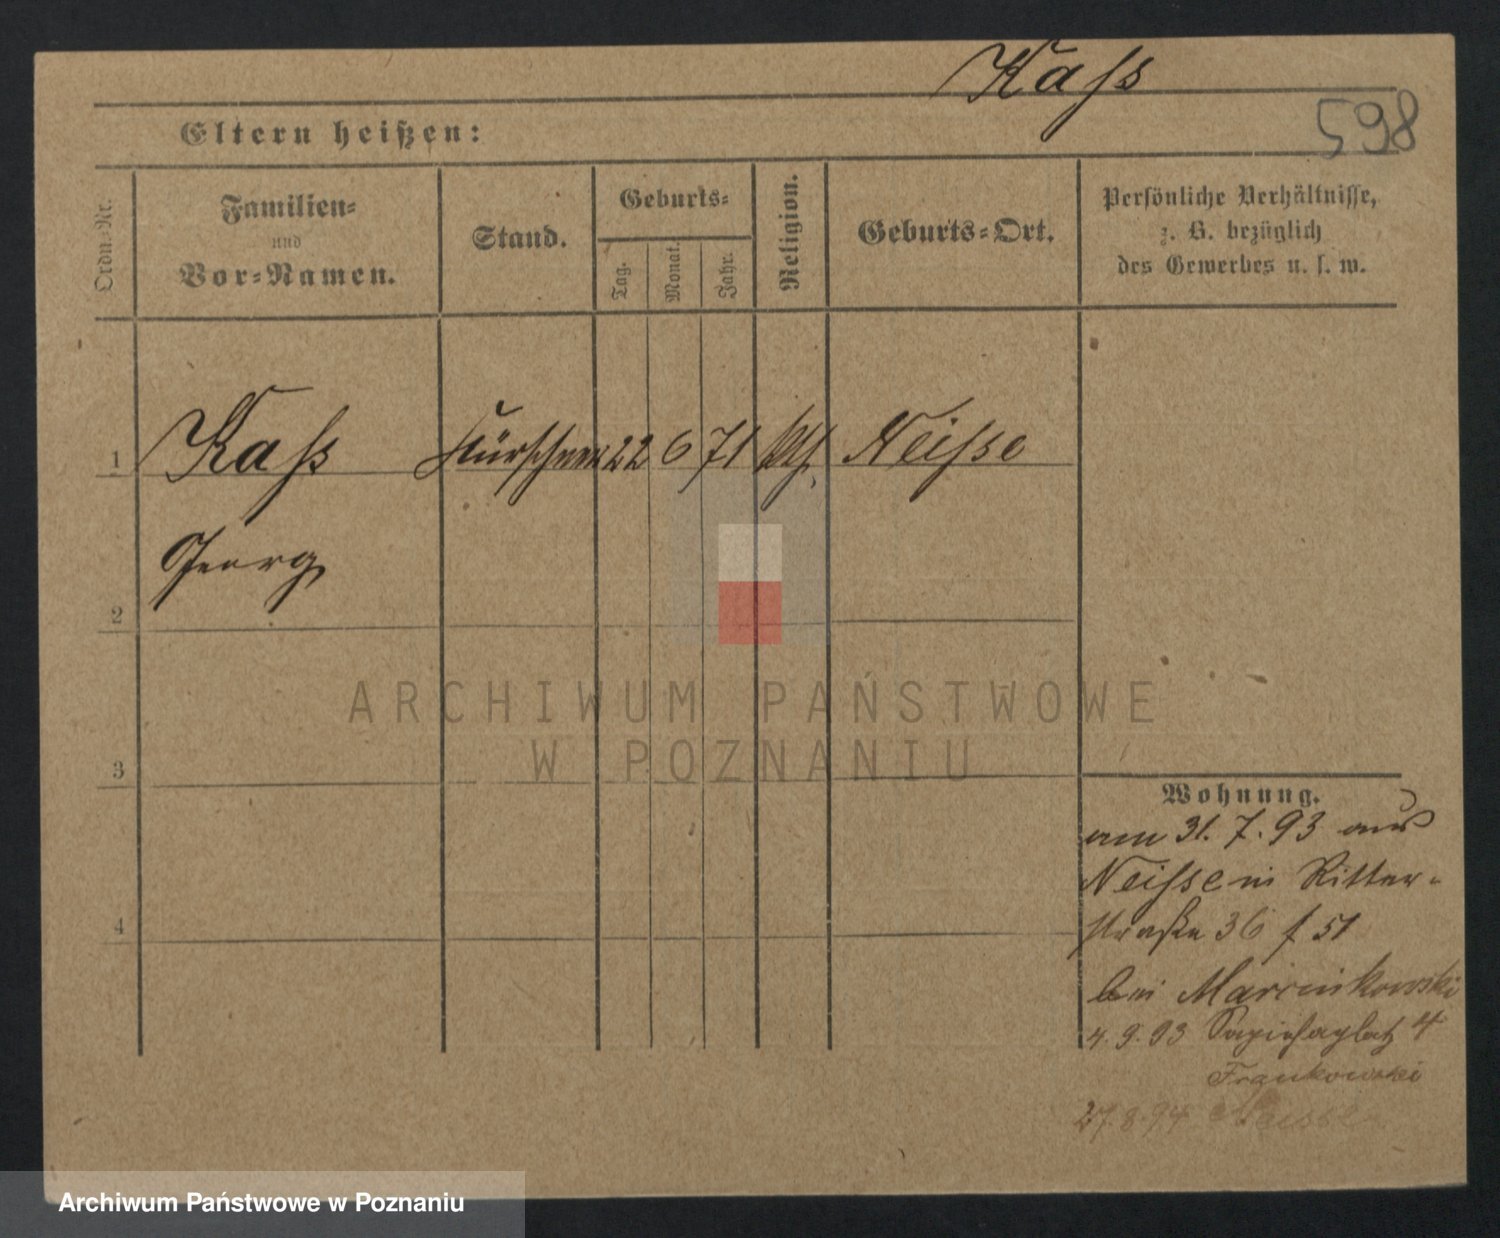 Kaſs
598
Eltern heißen:
Ordn.-Nr.
Familien-
und
Vor-Namen.
Stand.
Geburts-
Tag.
Monat.
Jahr.
Religion.
Geburts-Ort.
Persönliche Verhältnisse,
z. B. bezüglich
des Gewerbes u. s. w.
1 Kaſs Kürschner 22 6 71 kth. Neiſse
Georg
2
3
4
ARCHIWUM PAŃSTWOWE
W POZNANIU
Wohnung.
am 31. 7. 93 aus
Neiſse in Ritter-
straße 36 f 51
bei Marcinkowski
4. 9. 93 Sapiehaplatz 4
Frankowski
27. 8. 94 Neisse
Archiwum Państwowe w Poznaniu